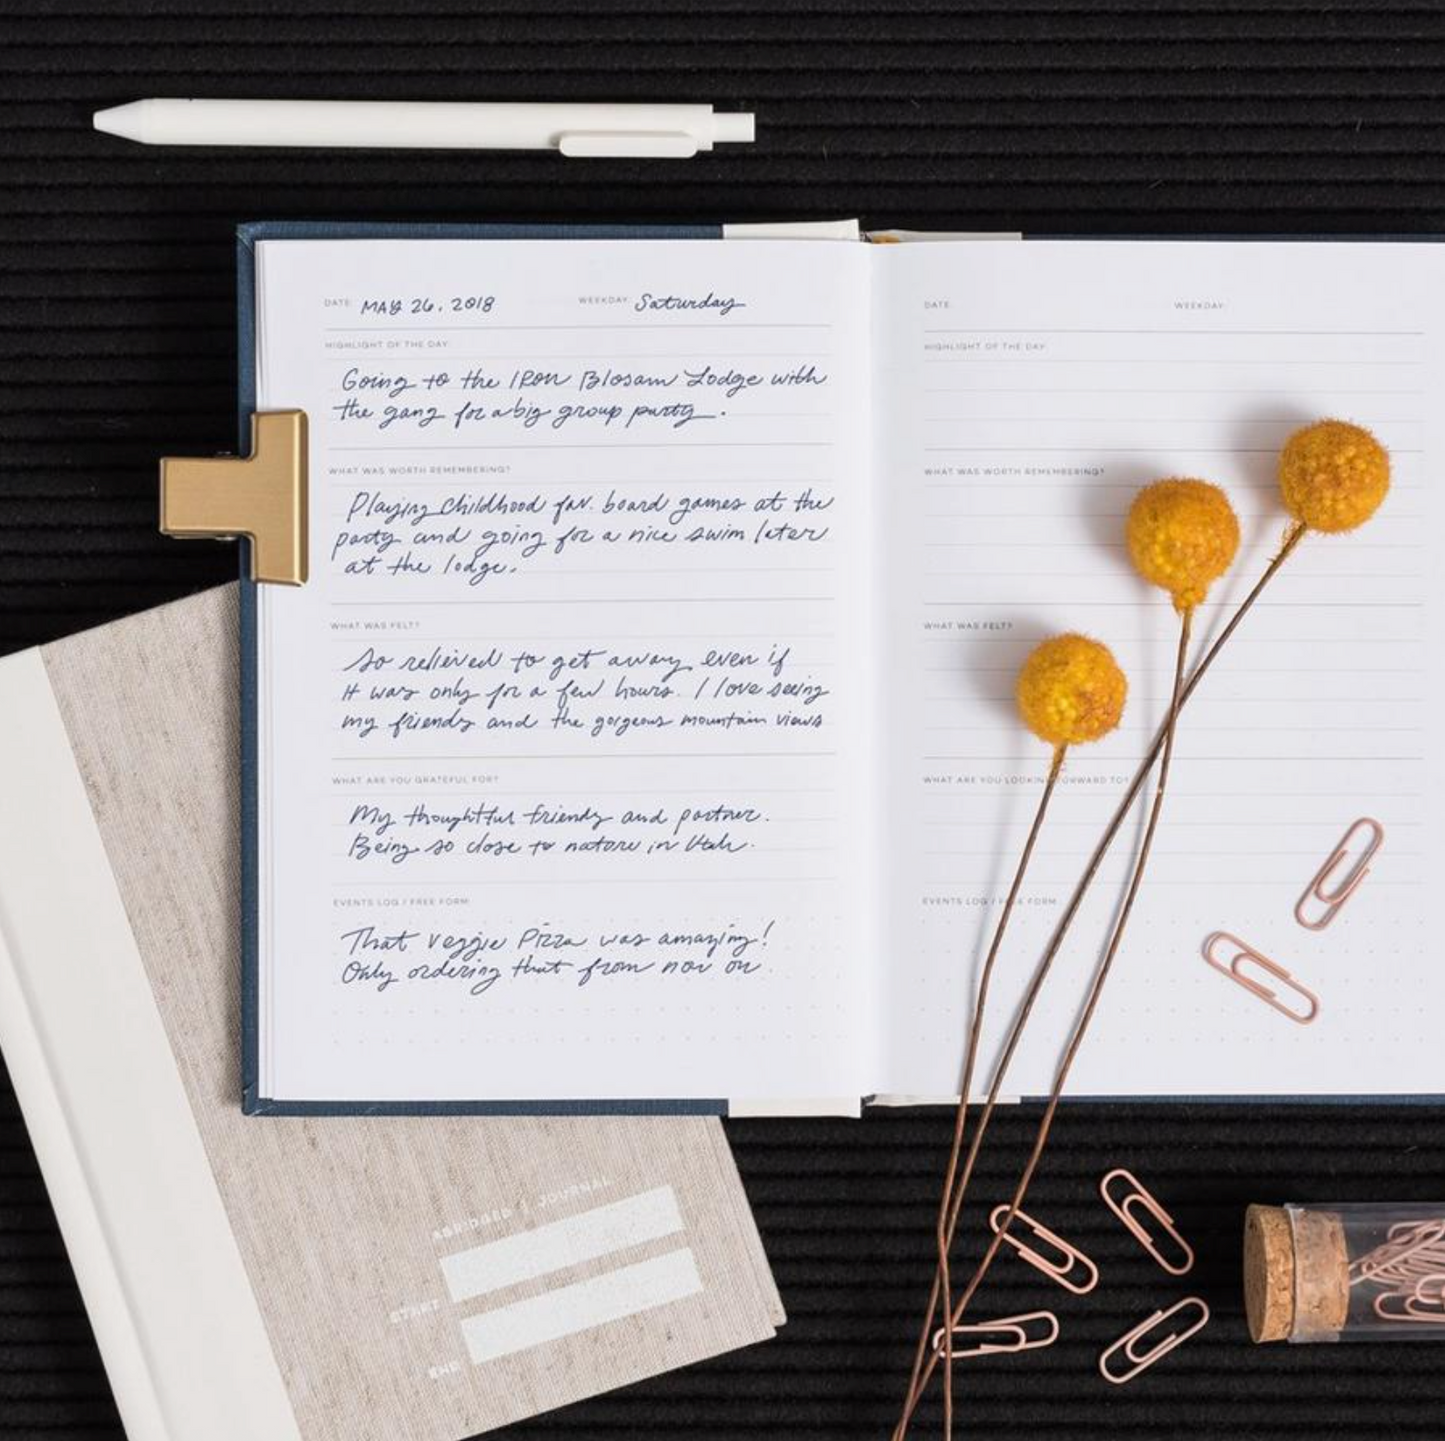 DATE: MAY 26, 2018 WEEKDAY: Saturday
HIGHLIGHT OF THE DAY:
Going to the Iron Blosam Lodge with
the gang for a big group party.
WHAT WAS WORTH REMEMBERING?
Playing childhood fav. board games at the
party and going for a nice swim later
at the lodge.
WHAT WAS FELT?
So relieved to get away even if
it was only for a few hours. I love seeing
my friends and the gorgeous mountain views
WHAT ARE YOU GRATEFUL FOR?
My thoughtful friends and partner.
Being so close to nature in Utah.
EVENTS LOG / FREE FORM:
That veggie pizza was amazing!
Only ordering that from now on.
DATE: WEEKDAY:
HIGHLIGHT OF THE DAY:
WHAT WAS WORTH REMEMBERING?
WHAT WAS FELT?
WHAT ARE YOU LOOKING FORWARD TO?
EVENTS LOG / FREE FORM:
ABRIDGED / JOURNAL
START
END